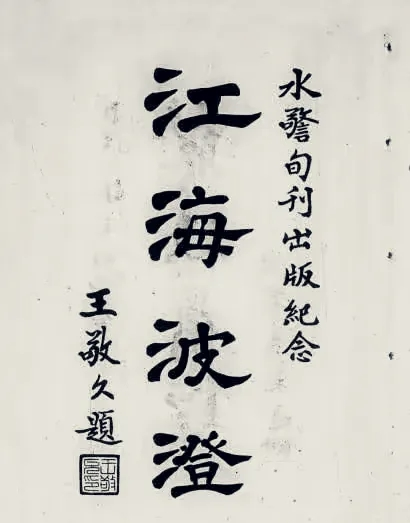 水警旬刊出版紀念
江海波澄
王敬久題